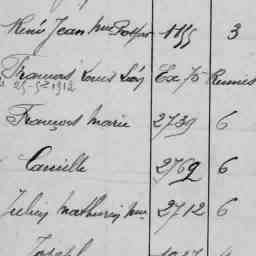 René Jean Mie 1155 3
François Louis Léon Ex 75 Rennes
25-5-1912
François Marie 2739 6
Camille 2762 6
Julien Mathurin Mie 2712 6
Joseph